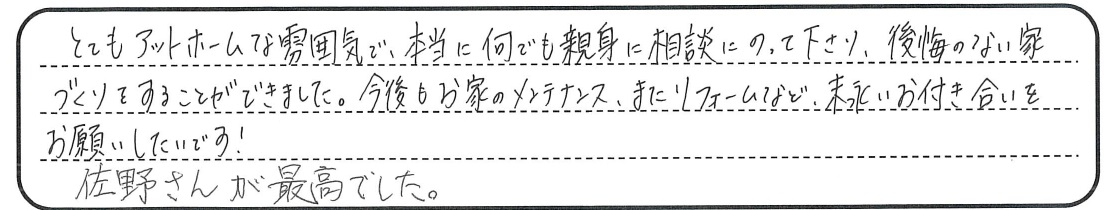 とてもアットホームな雰囲気で、本当に何でも親身に相談にのって下さり、後悔のない家
づくりをすることができました。今後もお家のメンテナンス、またリフォームなど、末永いお付き合いを
お願いしたいです!
佐野さんが最高でした。